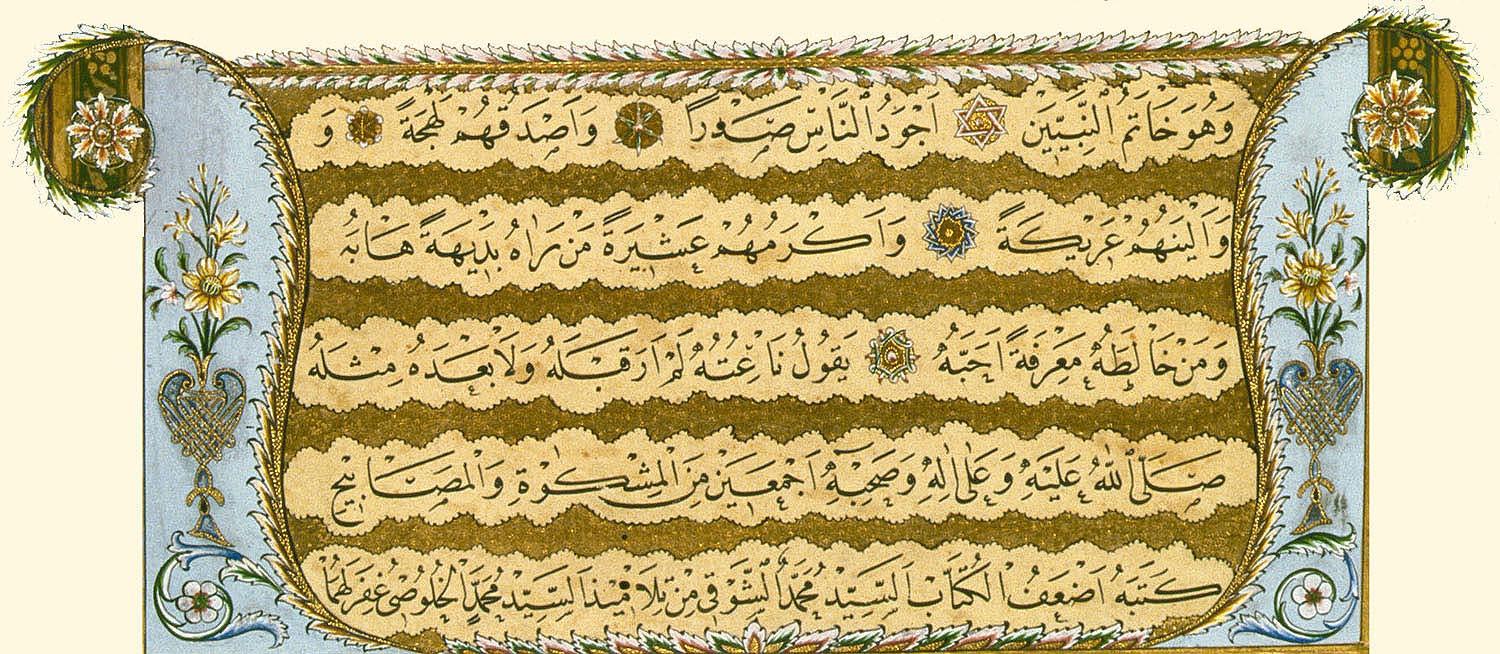 وَهُوَ خَاتَمُ النَّبِيِّينَ اَجْوَدُ النَّاسِ صَدْرًا وَاَصْدَقُهُمْ لَهْجَةً وَ
وَاَلْيَنُهُمْ عَرِيكَةً وَاَكْرَمُهُمْ عَشِيرَةً مَنْ رَاٰهُ بَدِيهَةً هَابَهُ
وَمَنْ خَالَطَهُ مَعْرِفَةً اَحَبَّهُ يَقُولُ نَاعِتُهُ لَمْ اَرَ قَبْلَهُ وَلَا بَعْدَهُ مِثْلَهُ
صَلَّى اللّٰهُ عَلَيْهِ وَعَلٰى اٰلِهِ وَصَحْبِهِ اَجْمَعِينَ مِنَ الْمِشْكٰوةِ وَالْمَصَابِيحِ
كَتَبَهُ اَضْعَفُ الْكُتَّابِ اَلسَّيِّدْ مُحَمَّدْ اَلشَّوْقِي مِنْ تَلَامِيذِ اَلسَّيِّدْ مُحَمَّدْ الْخُلُوصِي غُفِرَ لَهُمَا